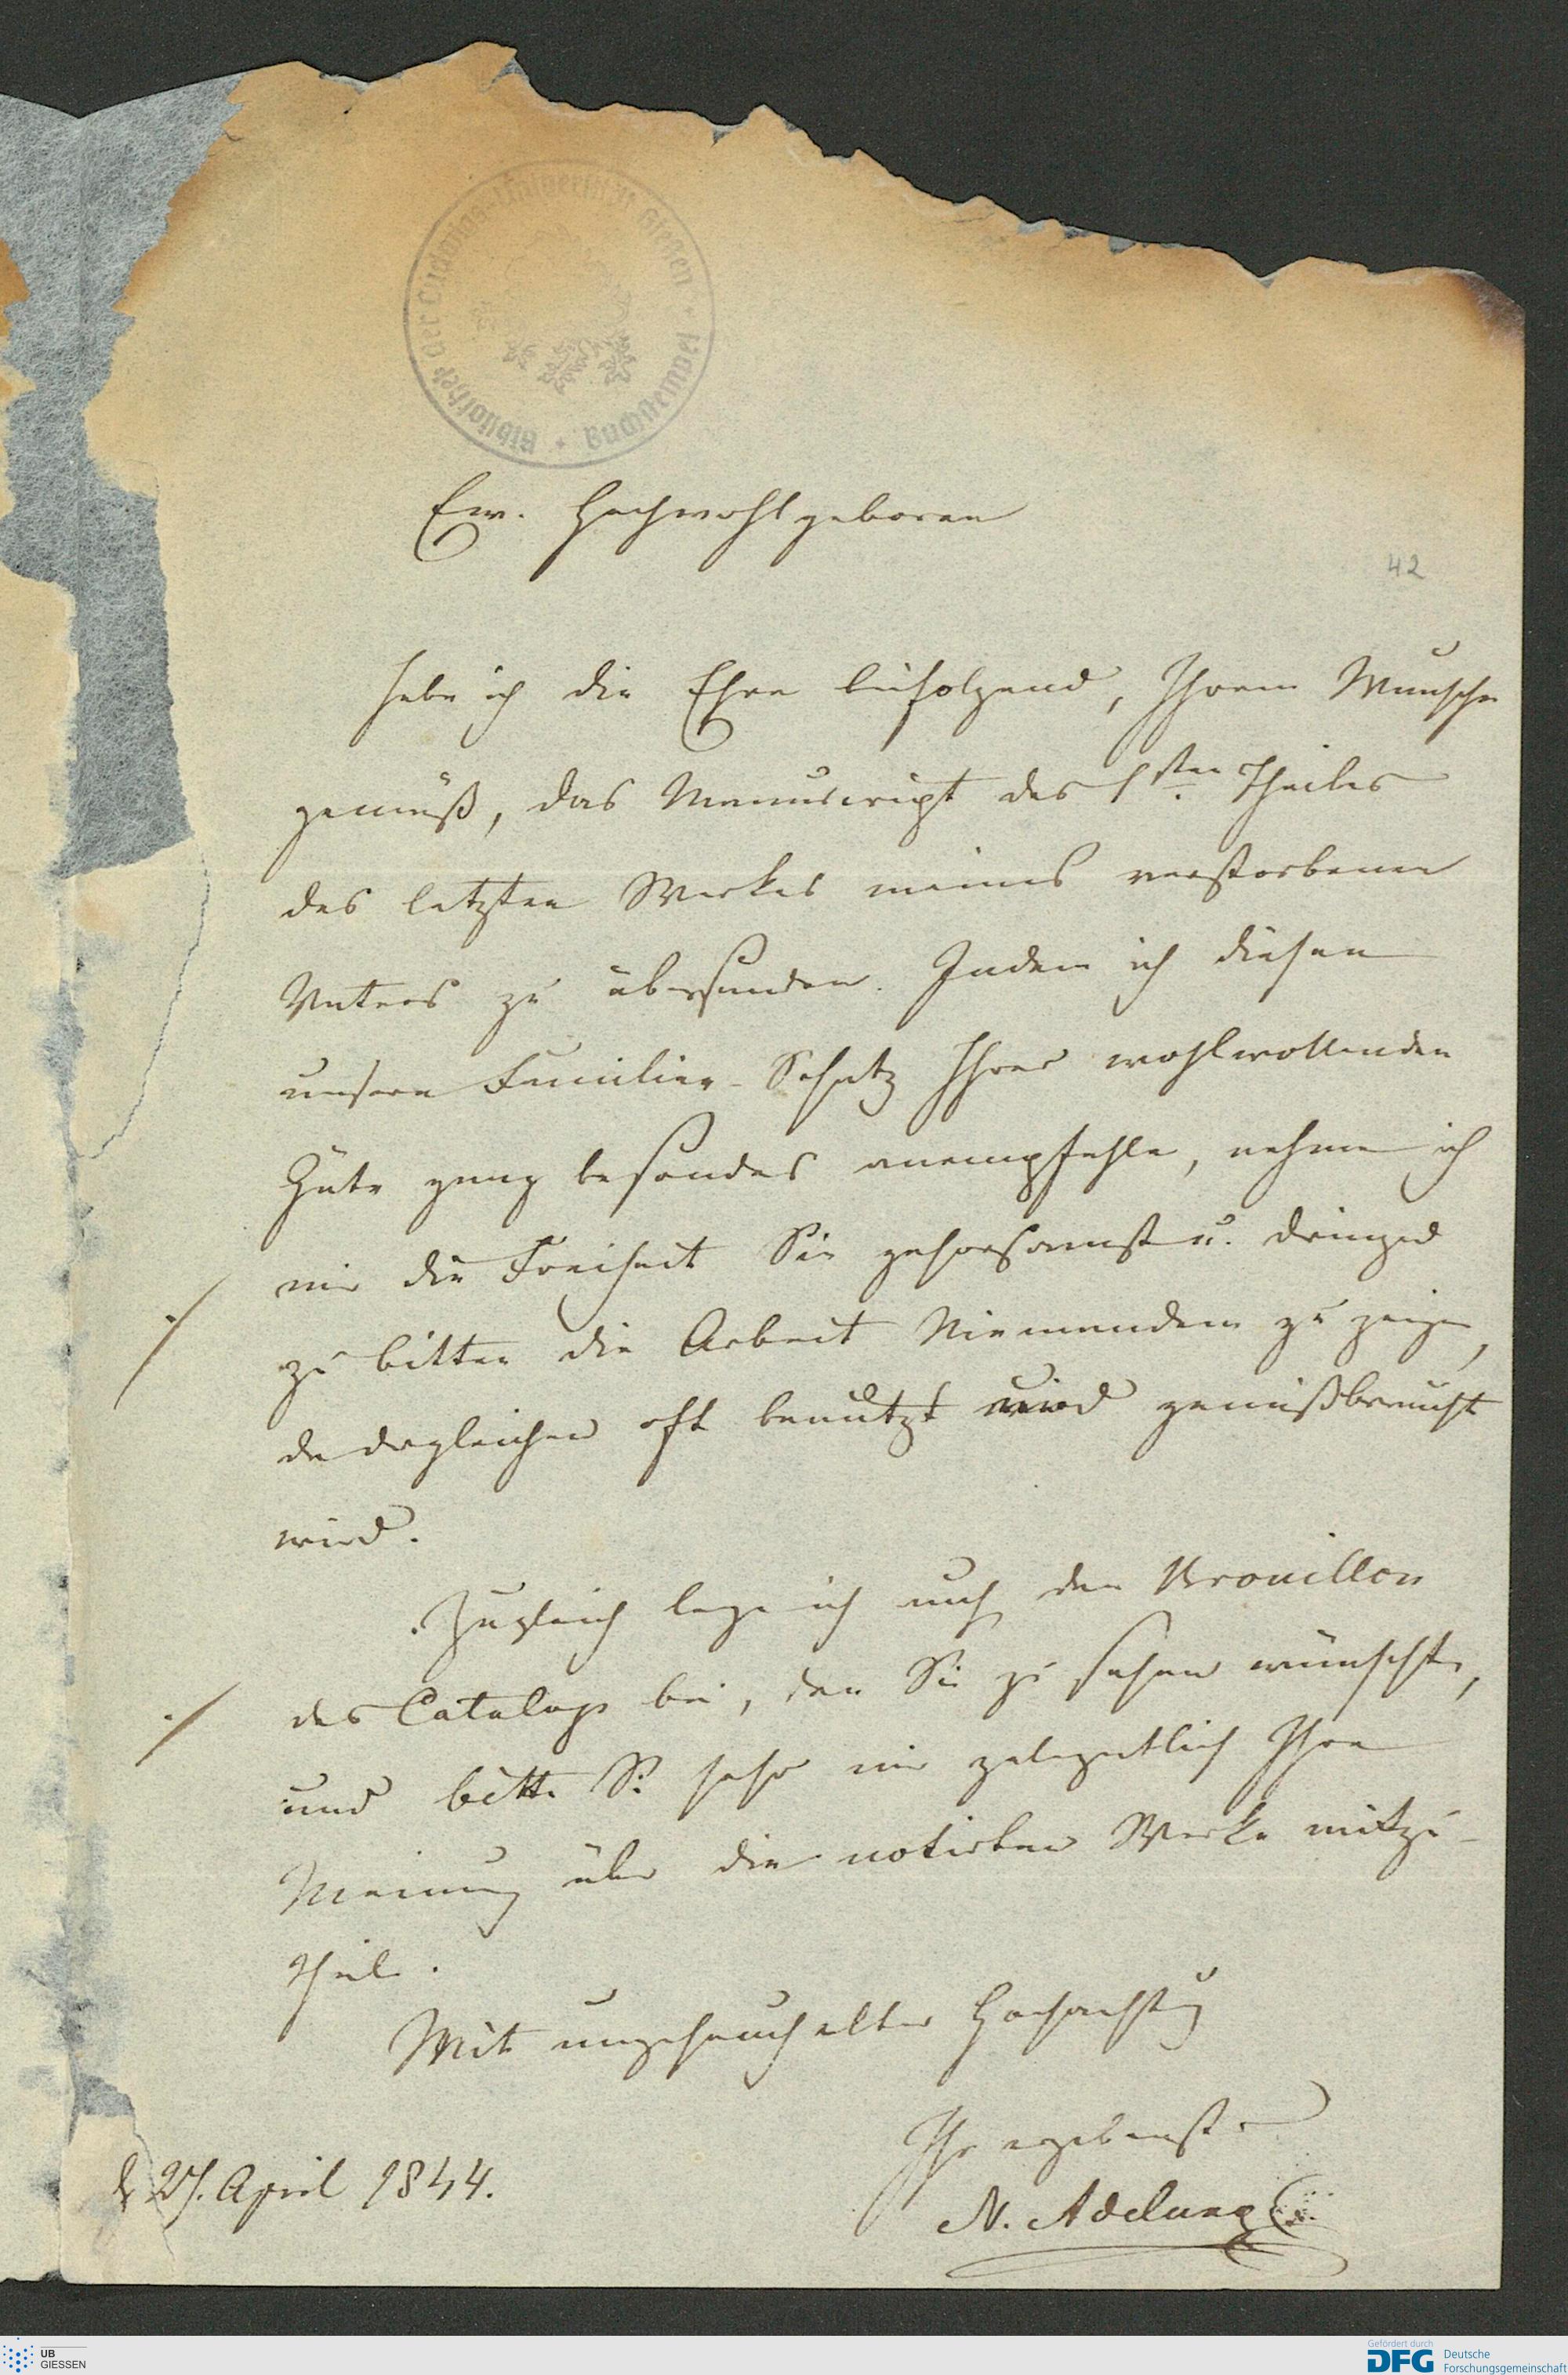 Bibliothek der Ludwigs-Universität Giessen * Nachstempel *
Ew. Hochwohlgeboren
42
habe ich die Ehre beifolgend, Ihrem Wunsche
gemäß, das Manuscript des 1sten Theiles
des letzten Werkes meines verstorbenen
Vaters zu übersenden. Indem ich diesen
unsern Familien-Schatz Ihrer wohlwollenden
Güte ganz besonders anempfehle, nehme ich
mir die Freiheit Sie gehorsamst u. dringend
zu bitten die Arbeit Niemandem zu zeigen,
da dergleichen oft benutzt und gemißbraucht
wird.
Zugleich lege ich auch den Brouillon
des Catalogs bei, den Sie zu sehen wünschten,
und bitte Sie sehr mir gelegentlich Ihre
Meinung über die notirten Werke mitzu-
theilen.
Mit ungeheuchelter Hochachtung
Ihr ergebenster
N. Adelung
d. 27. April 1844.
UB
GIESSEN
Gefördert durch
DFG Deutsche
Forschungsgemeinschaft